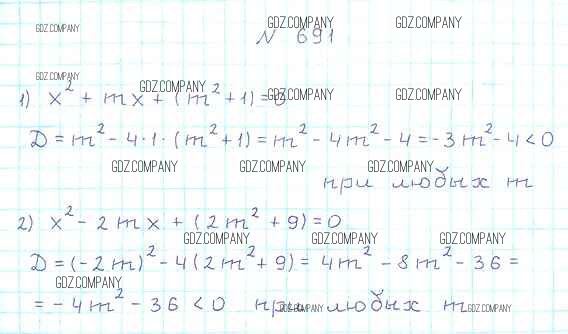 GDZ.COMPANY GDZ.COMPANY GDZ.COMPANY
N 691
GDZ.COMPANY GDZ.COMPANY GDZ.COMPANY GDZ.COMPANY
1) x² + mx + (m² + 1) = 0
D = m² - 4·1·(m² + 1) = m² - 4m² - 4 = -3m² - 4 < 0
GDZ.COMPANY GDZ.COMPANY GDZ.COMPANY
при любых m
2) x² - 2mx + (2m² + 9) = 0
GDZ.COMPANY GDZ.COMPANY GDZ.COMPANY
D = (-2m)² - 4(2m² + 9) = 4m² - 8m² - 36 =
GDZ.COMPANY
= -4m² - 36 < 0 при любых m
GDZ.COMPANY GDZ.COMPANY